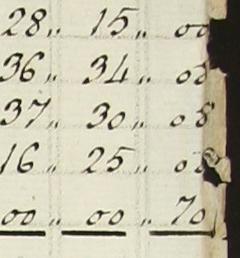 28 〃 15 〃 00
36 〃 34 〃 08
37 〃 30 〃 08
16 〃 25 〃 08
00 〃 00 〃 70